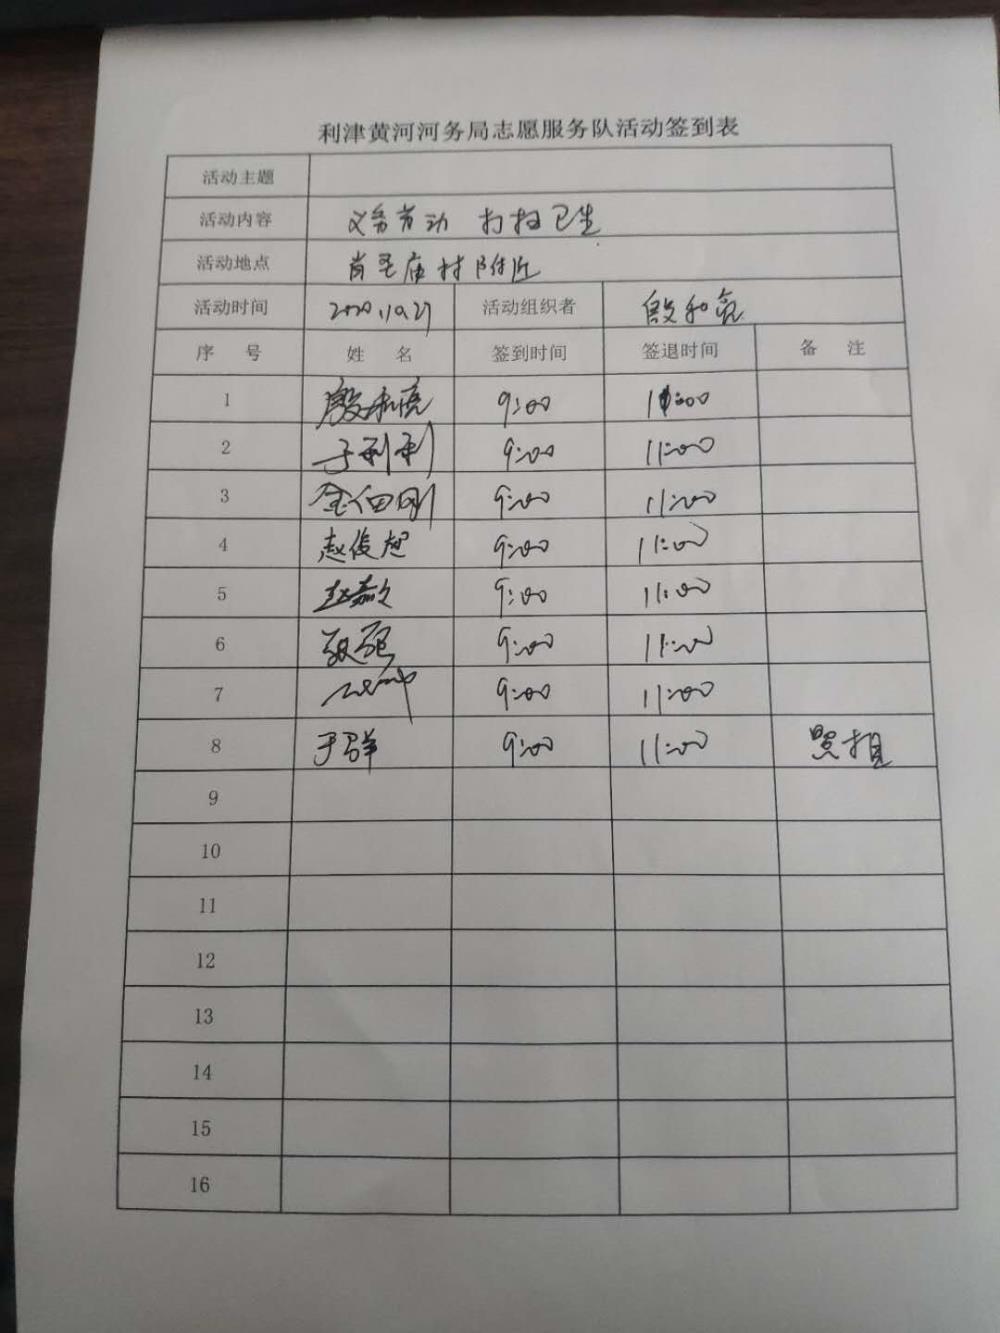 利津黄河河务局志愿服务队活动签到表
活动主题
活动内容 义务劳动 打扫卫生
活动地点 肖圣庙村附近
活动时间 2020.10.27 活动组织者 殷和亮
序 号 姓 名 签到时间 签退时间 备 注
1 殷和亮 9:00 11:00
2 于利利 9:00 11:00
3 9:00 11:00
4 赵俊超 9:00 11:00
5 9:00 11:00
6 9:00 11:00
7 9:00 11:00
8 于群 9:00 11:00 照相
9
10
11
12
13
14
15
16